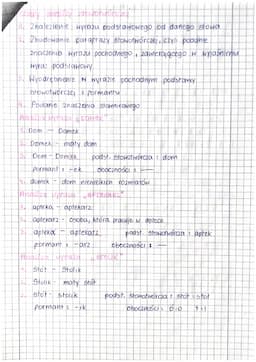 Zasady analizy słowotwórczej
1. Znalezienie wyrazu podstawowego od danego słowa
2. Zbudowanie parafrazy słowotwórczej, czyli podanie
znaczenia wyrazu pochodnego, zawierającego w wyjaśnieniu
wyraz podstawowy
3. Wyodrębnienie w wyrazie pochodnym podstawy
słowotwórczej i formantu
4. Podanie znaczenia słownikowego
Analiza wyrazu „domek"
1. Dom - Domek
2. Domek - mały dom
3. Dom - Domek podst. słowotwórcza : dom
formant : -ek oboczności : —
4. domek - dom niewielkich rozmiarów
Analiza wyrazu „aptekarz"
1. apteka - aptekarz
2. aptekarz - osoba, która pracuje w aptece
3. apteka - aptekarz podst. słowotwórcza : aptek
formant : -arz oboczności : —
Analiza wyrazu „stolik"
1. Stół - Stolik
2. Stolik - mały stół
3. stół - stolik podst. słowotwórcza : stol : stół
formant : -ik oboczności : ó:o ł:l